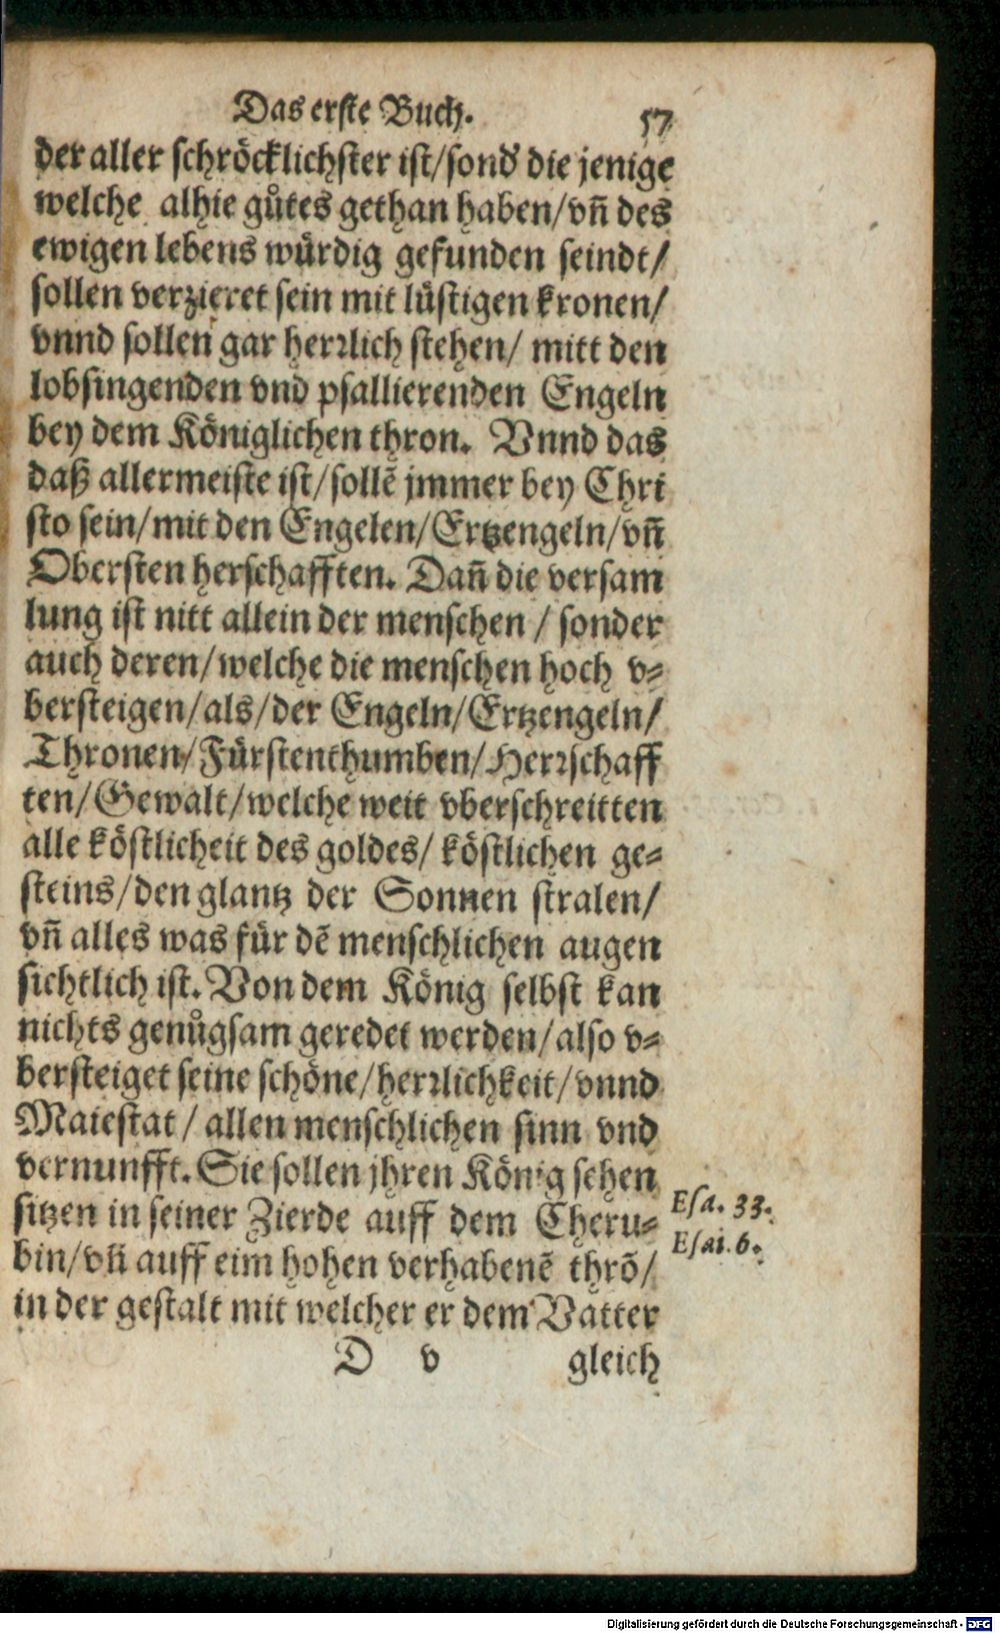 Das erste Buch. 57
der aller schröcklichster ist/sond' die jenige
welche alhie gůtes gethan haben/vñ des
ewigen lebens würdig gefunden seindt/
sollen verzieret sein mit lüstigen kronen/
vnnd sollen gar herrlich stehen/ mitt den
lobsingenden vnd psallierenden Engeln
bey dem Königlichen thron. Vnnd das
daß allermeiste ist/sollē jmmer bey Chri
sto sein/mit den Engelen/Ertzengeln/vñ
Obersten herschafften. Dañ die versam
lung ist nitt allein der menschen / sonder
auch deren/welche die menschen hoch v-
bersteigen/als/der Engeln/Ertzengeln/
Thronen/Fürstenthumben/Herrschaff
ten/Gewalt/welche weit vberschreitten
alle köstlicheit des goldes/ köstlichen ge-
steins/den glantz der Sonnen stralen/
vñ alles was für dē menschlichen augen
sichtlich ist. Von dem König selbst kan
nichts genůgsam geredet werden/also v-
bersteiget seine schöne/herrlichkeit/vnnd
Maiestat / allen menschlichen sinn vnd
vernunfft. Sie sollen jhren König sehen
sitzen in seiner Zierde auff dem Cheru-
bin/vñ auff eim hohen verhabenē thrō/
in der gestalt mit welcher er dem Vatter
Esa. 33.
Esai. 6.
D v gleich
Digitalisierung gefördert durch die Deutsche Forschungsgemeinschaft - DFG